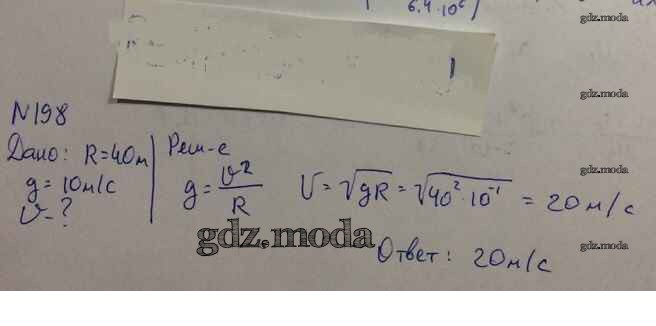 6.4·10⁶)
gdz.moda
gdz.moda
N198
Дано: R=40м
g=10м/с
υ-?
Реш-е
g = υ²/R
υ = √gR = √40²·10⁻¹ = 20м/с
Ответ: 20м/с
gdz.moda
gdz.moda
gdz.moda
gdz.moda